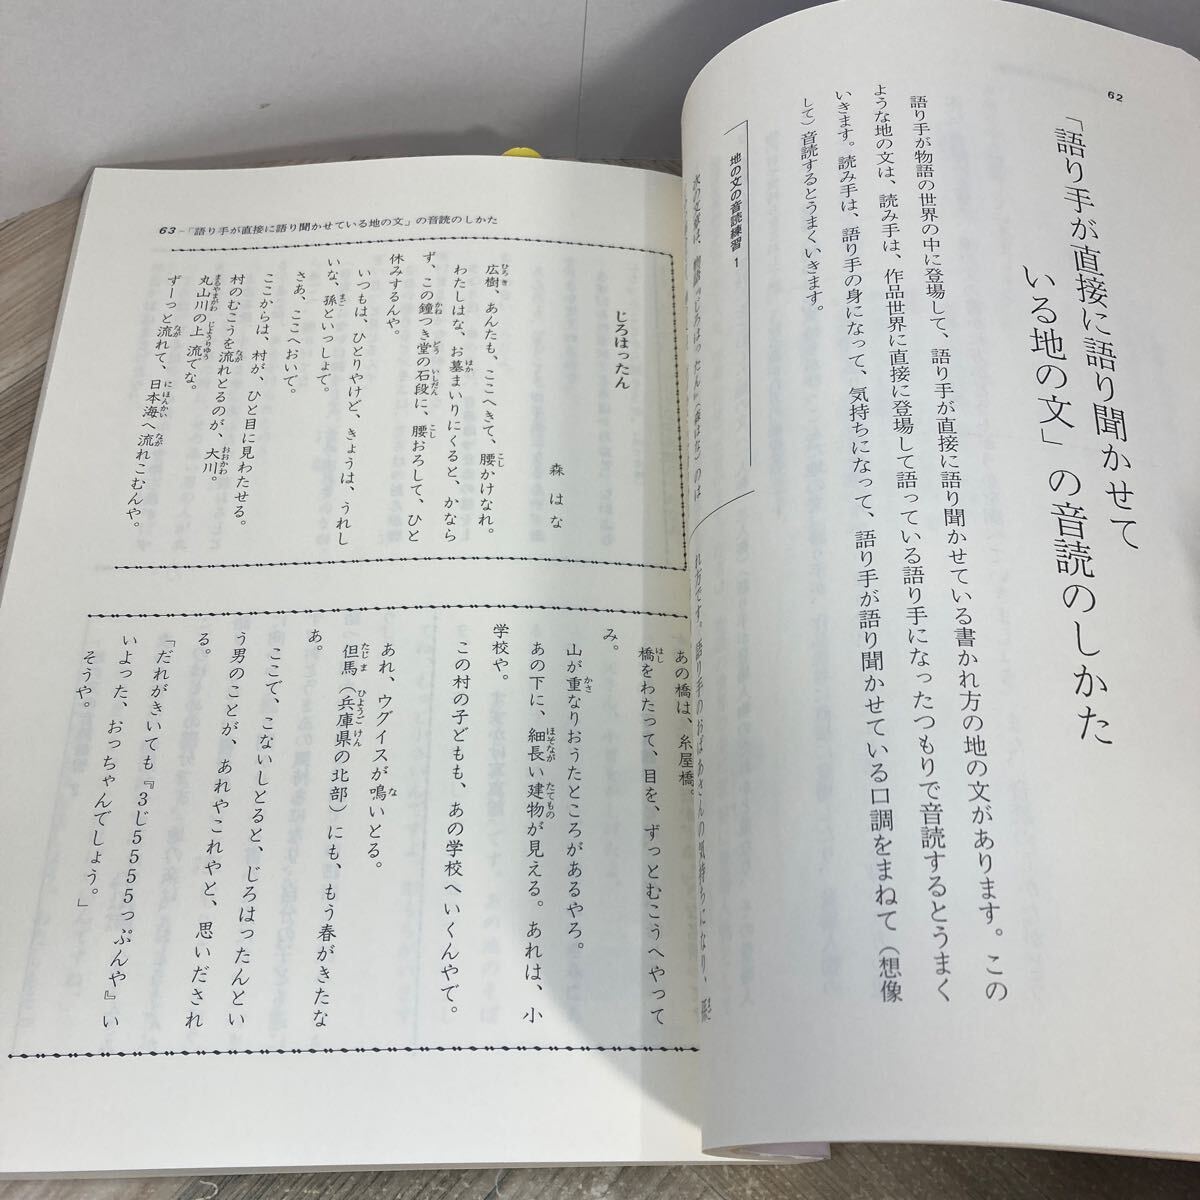 62
「語り手が直接に語り聞かせて
いる地の文」の音読のしかた
語り手が物語の世界の中に登場して、語り手が直接に語り聞かせている書かれ方の地の文があります。この
ような地の文は、読み手は、作品世界に直接に登場して語っている語り手になったつもりで音読するとうまく
いきます。読み手は、語り手の身になって、気持ちになって、語り手が語り聞かせている口調をまねて（想像
して）音読するとうまくいきます。
地の文の音読練習 1
次の文章は、物語『じろはったん』（森はな）のは
れ方です。語り手のおばあさんの気持ちになり、孫
63-「語り手が直接に語り聞かせている地の文」の音読のしかた
じろはったん
森 はな
広樹、あんたも、ここへきて、腰かけなれ。
わたしはな、お墓まいりにくると、かなら
ず、この鐘つき堂の石段に、腰おろして、ひと
休みするんや。
いつもは、ひとりやけど、きょうは、うれし
いな、孫といっしょで。
さあ、ここへおいで。
ここからは、村が、ひと目に見わたせる。
村のむこうを流れとるのが、大川。
丸山川の上流でな。
ずーっと流れて、日本海へ流れこむんや。
あの橋は、糸屋橋。
橋をわたって、目を、ずっとむこうへやって
み。
山が重なりおうたところがあるやろ。
あの下に、細長い建物が見える。あれは、小
学校や。
この村の子どもも、あの学校へいくんやで。
あれ、ウグイスが鳴いとる。
但馬（兵庫県の北部）にも、もう春がきたな
あ。
ここで、こないしとると、じろはったんとい
う男のことが、あれやこれやと、思いだされ
る。
「だれがきいても『3じ5555っぷんや』い
いよった、おっちゃんでしょう。」
そうや。